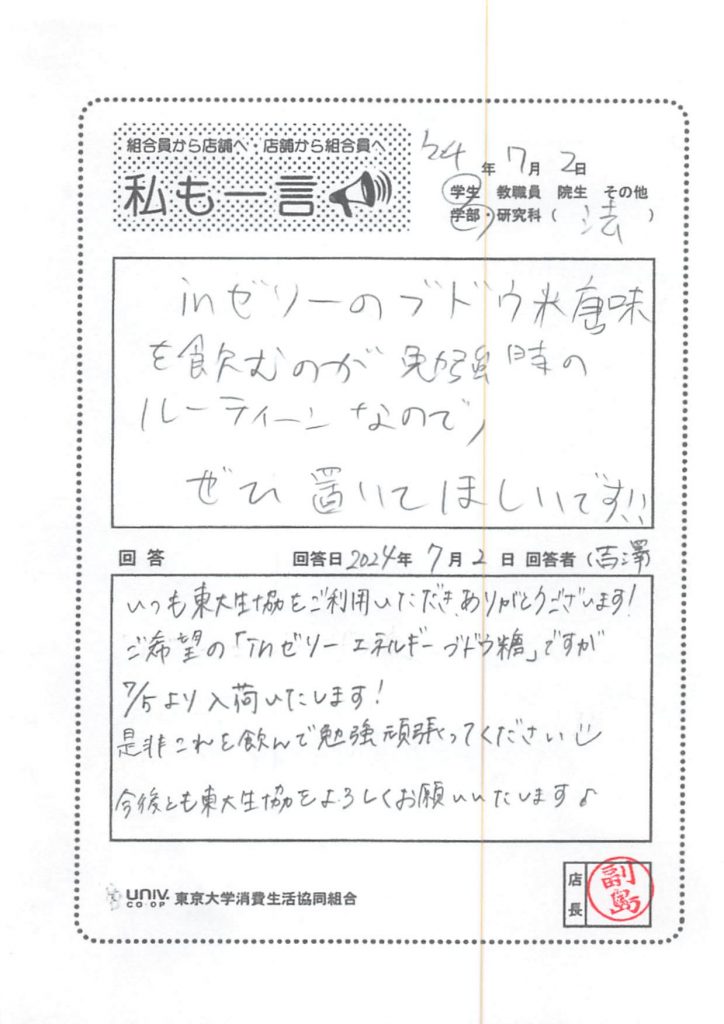 組合員から店舗へ・店舗から組合員へ
私も一言
'24年 7月 2日
学生 教職員 院生 その他
学部・研究科 ( 法 )
inゼリーのブドウ糖味
を飲むのが勉強時の
ルーティーンなので、
ぜひ置いてほしいです!!
回答 回答日 2024年 7月 2日 回答者 (吉澤
いつも東大生協をご利用いただきありがとうございます!
ご希望の「inゼリー エネルギー ブドウ糖」ですが
7/5より入荷いたします!
是非これを飲んで勉強頑張ってください
今後とも東大生協をよろしくお願いいたします♪
UNIV. CO-OP 東京大学消費生活協同組合
店長 副島